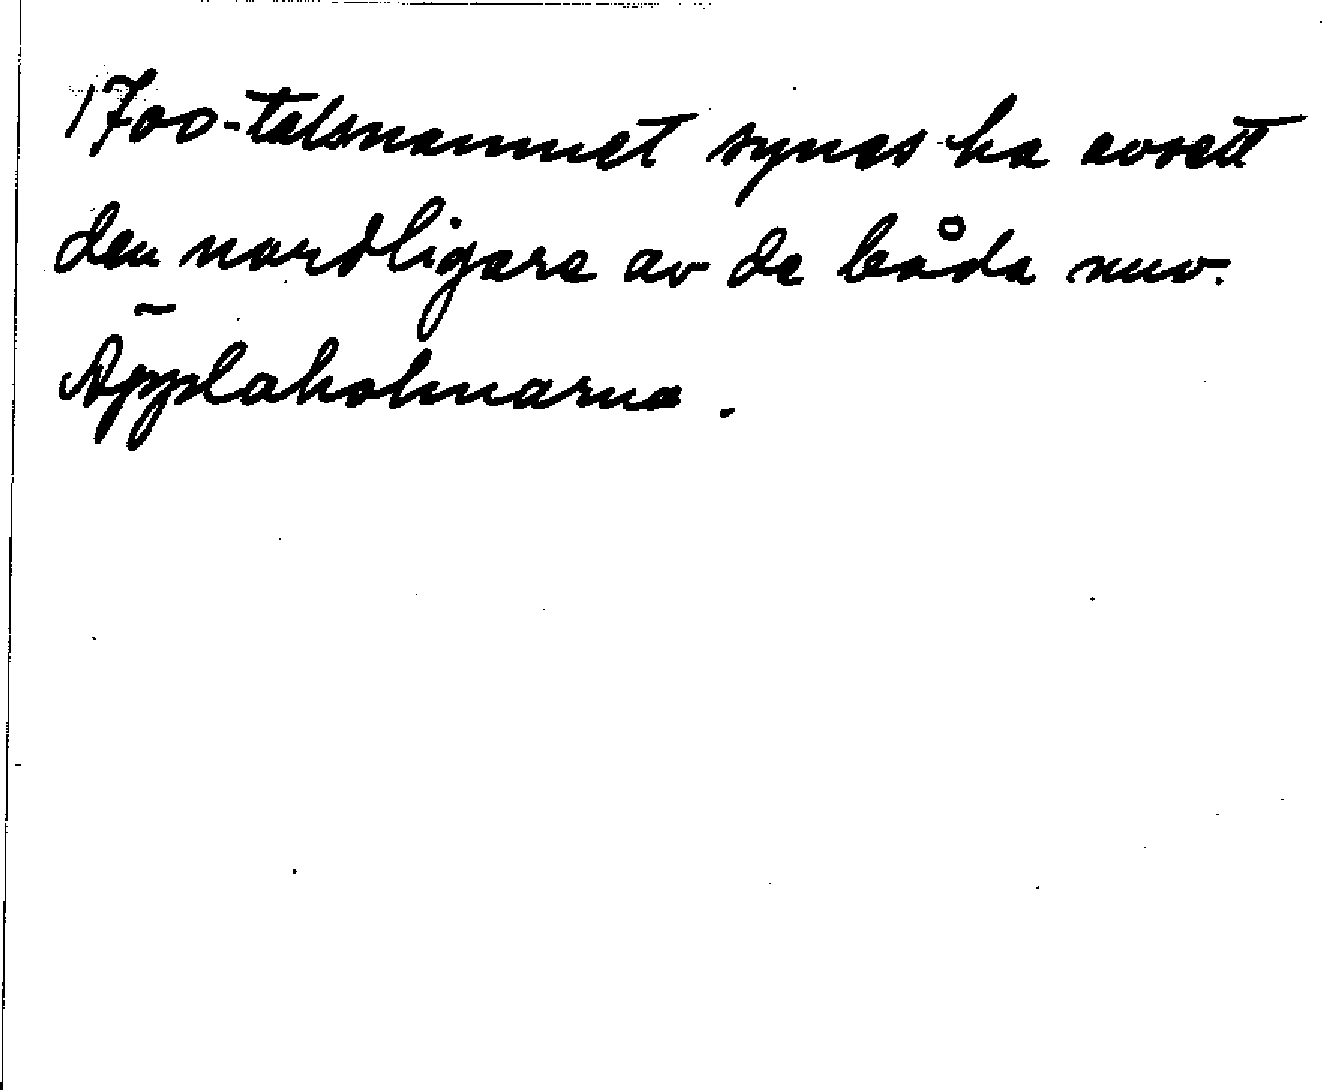 1700-talsnamnet synes ha avsett
den nordligare av de båda nuv.
Äpplaholmarna.